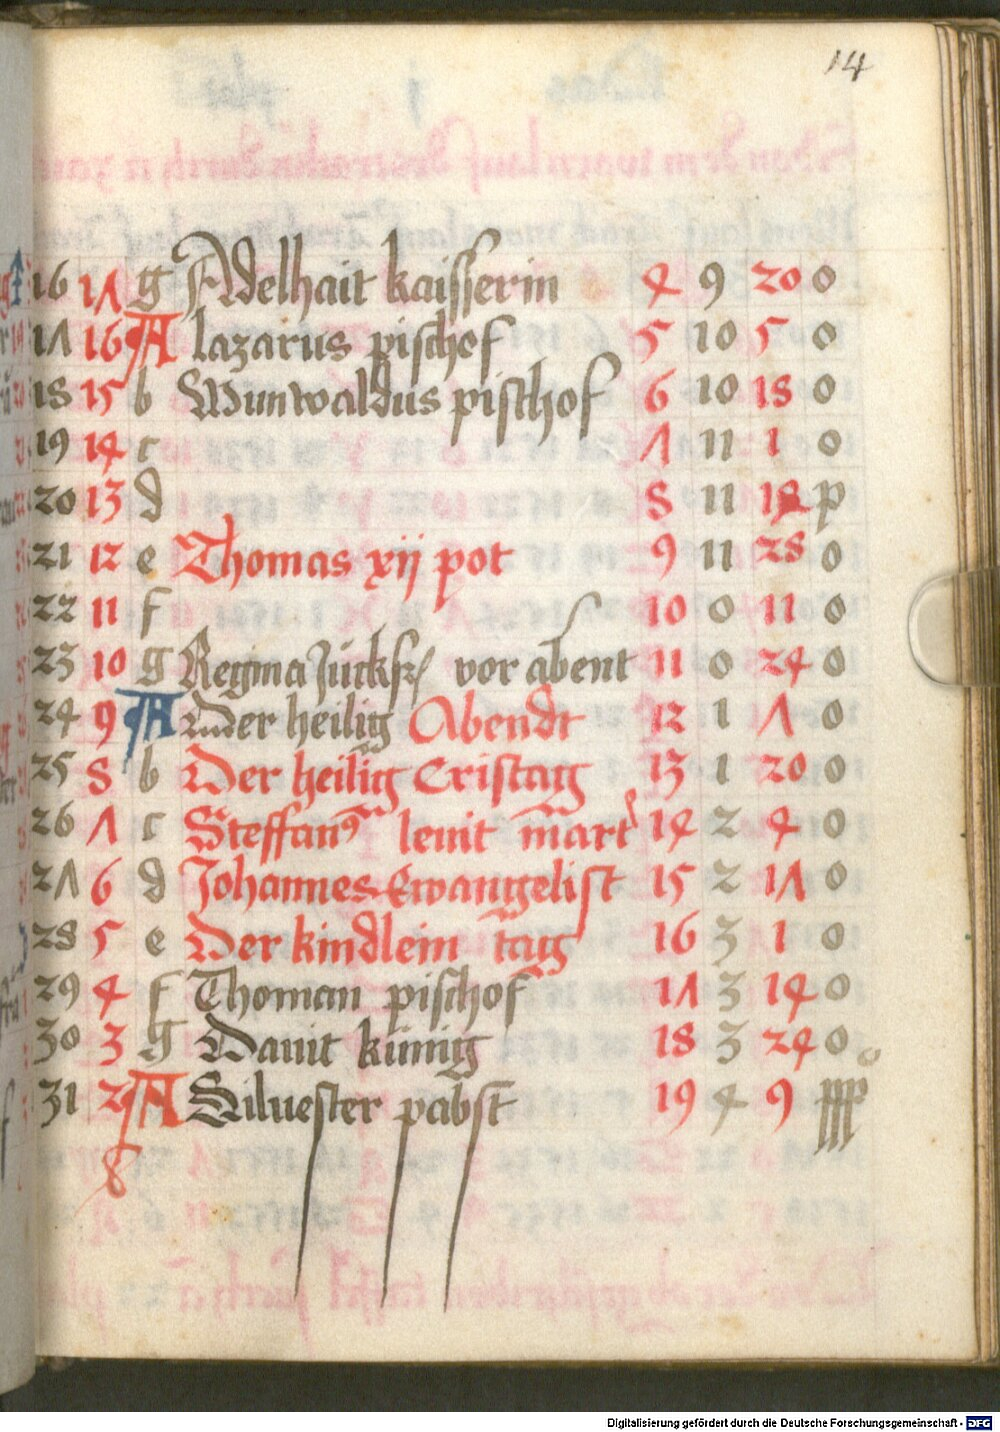 14
16 17 g Adelhait kaisserin 4 9 20 0
17 16 A lazarus pischof 5 10 5 0
18 15 b Wunwaldus pischof 6 10 18 0
19 14 c 7 11 1 0
20 13 d 8 11 18 p
21 12 e Thomas xij pot 9 11 28 0
22 11 f 10 0 11 0
23 10 g Regina Junckfr vor abent 11 0 24 0
24 9 A Der heilig Abendt 12 1 7 0
25 8 b Der heilig Cristag 13 1 20 0
26 7 c Steffanꝰ leuit mart 14 2 4 0
27 6 d Johannes Ewangelist 15 2 17 0
28 5 e Der kindlein tag 16 3 1 0
29 4 f Thoman pischof 17 3 14 0
30 3 g Dauit kunig 18 3 24 0
31 2 A Siluester pabst 19 4 9
Digitalisierung gefördert durch die Deutsche Forschungsgemeinschaft - DFG